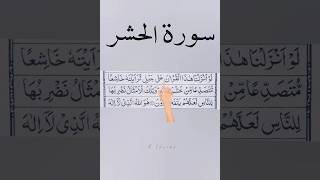 سورة الحشر
لَوْ اَنْزَلْنَا هٰذَا الْقُرْاٰنَ عَلٰى جَبَلٍ لَّرَاَيْتَهٗ خَاشِعًا
مُّتَصَدِّعًا مِّنْ وَتِلْكَ الْاَمْثَالُ نَضْرِبُهَا
لِلنَّاسِ لَعَلَّهُمْ هُوَ اللّٰهُ الَّذِيْ لَاۤ اِلٰهَ